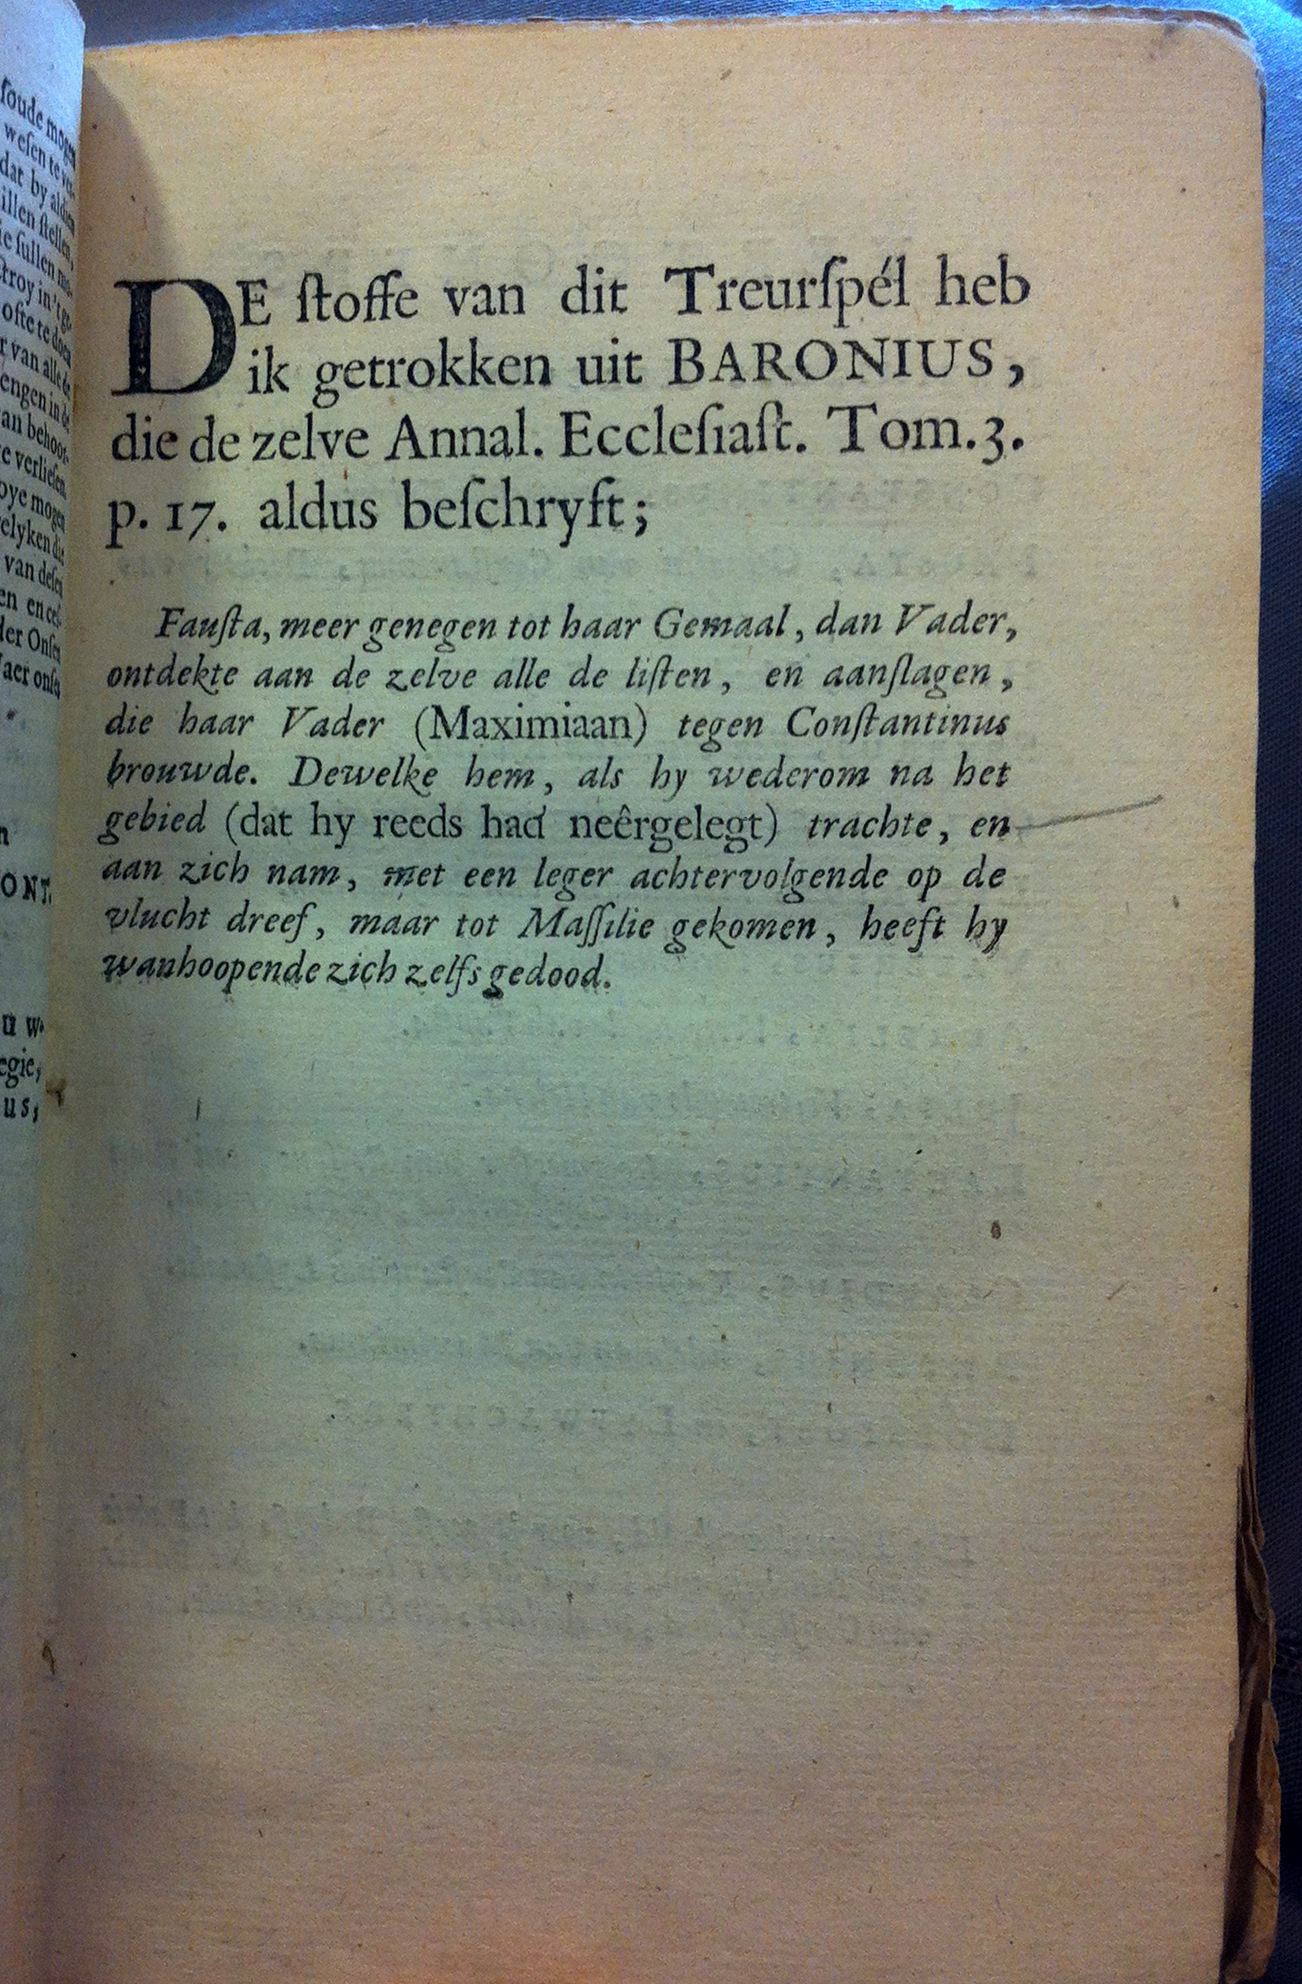 soude mogen
wesen te ver-
dat by aldien
illen stellen,
ie sullen mo-
ctroy in 't ge-
ofte te doen
r van alle de
engen in de
an behoor-
e verliesen
oye mogen
elyken die
van desen
en en ces-
der Onsen
aer onse
n
ONT.
u w-
egie,
us,
DE stoffe van dit Treurspél heb
ik getrokken uit BARONIUS,
die de zelve Annal. Ecclesiast. Tom. 3.
p. 17. aldus beschryft;
Fausta, meer genegen tot haar Gemaal, dan Vader,
ontdekte aan de zelve alle de listen, en aanslagen,
die haar Vader (Maximiaan) tegen Constantinus
brouwde. Dewelke hem, als hy wederom na het
gebied (dat hy reeds had neêrgelegt) trachte, en
aan zich nam, met een leger achtervolgende op de
vlucht dreef, maar tot Massilie gekomen, heeft hy
wanhoopende zich zelfs gedood.